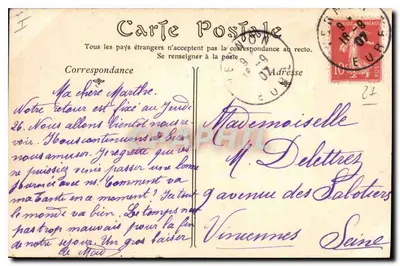 Carte Postale
Tous les pays étrangers n'acceptent pas la correspondance au recto.
Se renseigner à la poste
Correspondance
Adresse
Ma chère Marthe.
Notre retour est fixé au Jeudi
26. Nous allons bientôt nous re-
voir. Nous continuons à bien
nous amuser. Je regrette que vous ne
puissiez venir passer une bonne
journée avec ns. Comment va
ma tante en ce moment? Ici tout
le monde va bien. Le temps n'est
pas trop mauvais pour la fin
de notre séjour. Un gros baiser
de Mad
Mademoiselle
M. Delettrez
9 avenue des Sabotiers
Vincennes
Seine
EURE
16 -9
07
10